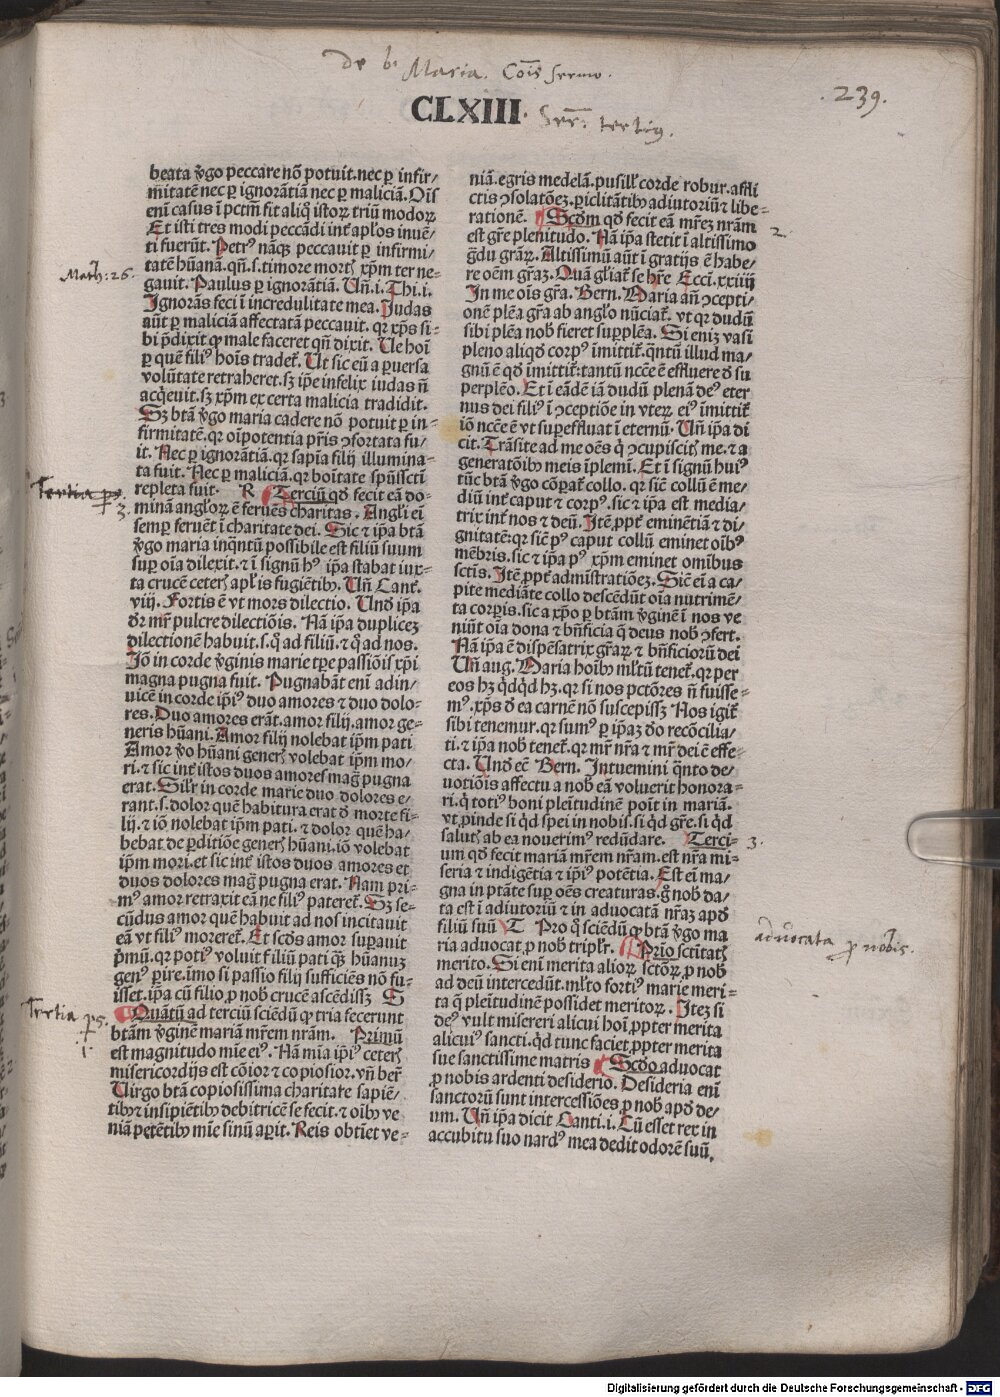 de b. Maria. Cois sermo.
CLXIII. Ser: tertiꝰ.
.239.
beata ꝟgo peccare nō potuit.nec ꝑ infir⸗
mitatē nec ꝑ ignorātiā nec ꝑ maliciā. Oīs
enī casus ī pctm̄ fit aliq̊ istoꝝ triū modoꝝ
Et isti tres modi peccādi inť apl'os inuē⸗
ti fuerūt. Petrꝰ nāqꝫ peccauit ꝑ infirmi⸗
tatē hūanā. qn̄.s.timore mortꝭ xp̄m ter ne⸗
gauit. Paulus ꝑ ignorātiā. Un̄.i.Thi.i.
Ignorās feci ī incredulitate mea. Judas
aūt ꝑ maliciā affectatā peccauit. qꝛ xp̄s si⸗
bi p̄dixit ꝙ male faceret qn̄ dixit. Ue hoī
ꝑ quē filiꝰ hoīs tradeť. Ut sic eū a ꝑuersa
volūtate retraheret.sꝫ ip̄e infelix iudas n̄
acq̇euit.sꝫ xp̄m ex certa malicia tradidit.
Sꝫ btā ꝟgo maria cadere nō potuit ꝑ in⸗
firmitatē.qꝛ oīpotentia pr̄is ↄfortata fu⸗
it. Nec ꝑ ignorātiā.qꝛ sapīa filij illumina⸗
ta fuit. Nec ꝑ maliciā.qꝛ boītate spūssctī
repleta fuit. R Terciū qd̄ fecit eā do⸗
minā angl'oꝝ ē feruēs charitas. Angl'i eī
semꝑ feruēt ī charitate dei. Sic ⁊ ip̄a btā
ꝟgo maria inq̄ntū possibile est filiū suum
suꝑ oīa dilexit.⁊ ī signū hꝰ ip̄a stabat iux⸗
ta crucē ceterꝭ apl'is fugiētibꝰ. Un̄ Canť.
viij. Fortis ē vt mors dilectio. Und̄ ip̄a
dr̄ mr̄ pulcre dilectiōis. Nā ip̄a duplicez
dilectionē habuit.s.q̄ ad filiū.⁊ q̄ ad nos.
Iō in corde ꝟginis marie tꝑe passiōis xp̄i
magna pugna fuit. Pugnabāt enī adin⸗
uicē in corde ip̄iꝰ duo amores ⁊ duo dolo⸗
res. Duo amores erāt.amor filij.amor ge⸗
neris hūani. Amor filij nolebat ip̄m pati
Amor ꝟo hūani generꝭ volebat ip̄m mo⸗
ri.⁊ sic inť istos duos amores mag̃ pugna
erat. Sil'r in corde marie duo dolores e⸗
rant.s.dolor quē habitura erat d̄ morte fi⸗
lij.⁊ iō nolebat ip̄m pati.⁊ dolor quē ha⸗
bebat de ꝑditiōe generꝭ hūani.iō volebat
ip̄m mori.et sic inť istos duos amores et
duos dolores mag̃ pugna erat. Nam pri⸗
mꝰ amor retraxit eā ne filiꝰ patereť. Sꝫ se⸗
cūdus amor quē habuit ad nos incitauit
eā vt filiꝰ morereť. Et scd̄s amor suꝑauit
p̄mū.qꝛ potiꝰ voluit filiū pati qꝫ hūanuꝫ
genꝰ ꝑire.īmo si passio filij sufficiēs nō fu⸗
isset.ip̄a cū filio ꝓ nob̄ crucē ascēdissꝫ S
Quātū ad terciū sciēdū ꝙ tria fecerunt
btām ꝟginē mariā mr̄em nr̄am. Primū
est magnitudo mīe eiꝰ. Nā mīa ip̄iꝰ ceterꝭ
misericordijs est cōior ⁊ copiosior.vn̄ ber̄
Uirgo btā copiosissima charitate sapiē⸗
tibꝰ ⁊ insipiētibꝰ debitricē se fecit.⁊ oībꝰ ve
niā petētibꝰ mīe sinū aꝑit. Reis obtīet ve⸗
niā.egris medelā.pusill' corde robur.affli
ctis ↄsolatōez.ꝑiclitātibꝰ adiutoriū ⁊ libe⸗
rationē. Scd̄m qd̄ fecit eā mr̄ez nr̄am
est gr̄e plenitudo. Nā ip̄a stetit ī altissimo
g̊du gr̄aꝝ. Altissimū aūt ī gratijs ē habe⸗
re oēm gr̄az. Quā gl'iať se hr̄e Ecci.xxiiij
In me oīs gr̄a. Bern. Maria an̄ ↄcepti⸗
onē plēa gr̄a ab angl'o nūciať. vt qꝛ dudū
sibi plēa nob̄ fieret suꝑplēa. Si eniz vasi
pleno aliqd̄ corpꝰ īmittiť.q̄ntū illud ma⸗
gnū ē qd̄ īmittiť:tantū ncc̄e ē effluere d̄ su
perplēo. Et ī eādē iā dudū plenā deꝰ eter
nus dei filiꝰ ī ↄceptiōe in vteꝝ eiꝰ īmittiť
iō ncc̄e ē vt suꝑeffluat ī eternū. Un̄ ip̄a di
cit. Trāsite ad me oēs q̇ ↄcupiscitꝭ me.⁊ a
generatōibꝰ meis īplemī. Et ī signū huiꝰ
tūc btā ꝟgo cōꝑať collo. qꝛ sic̄ collū ē me⸗
diū inť caput ⁊ corpꝰ.sic ⁊ ip̄a est media⸗
trix inť nos ⁊ deū. Itē ꝓpť eminētiā ⁊ di⸗
gnitatē:qꝛ sic̄ pꝰ caput collū eminet oībꝰ
mēbris.sic ⁊ ip̄a pꝰ xp̄m eminet omibus
sctīs. Itē ꝓpť admīstratiōez. Sic̄ eī a ca⸗
pite mediāte collo descēdūt oīa nutrimē⸗
ta corꝑis.sic a xp̄o ꝑ btām ꝟginē ī nos ve
niūt oīa dona ⁊ bn̄ficia q̄ deus nob̄ ↄfert.
Nā ip̄a ē dispēsatrix gr̄aꝝ ⁊ bn̄ficioꝝ dei
Un̄ aug. Maria hoībꝰ ml'tū teneť.qꝛ per
eos hꝫ qd̄qd̄ hꝫ.qꝛ si nos pctōres n̄ fuisse⸗
mꝰ.xp̄s d̄ ea carnē nō suscepissꝫ Nos igiť
sibi tenemur.qꝛ sumꝰ ꝑ ip̄az dō recōcilia⸗
ti.⁊ ip̄a nob̄ teneť.qꝛ mr̄ nr̄a ⁊ mr̄ dei ē effe⸗
cta. Und̄ eē Bern. Intuemini q̄nto de⸗
uotiōis affectu a nob̄ eā voluerit honora⸗
ri.q̇ totiꝰ boni plēitudinē poīt in mariā.
vt ꝓinde si qd̄ spei in nobis.si qd̄ gr̄e.si qd̄
salutꝭ ab ea nouerimꝰ redūdare. Terci⸗
um qd̄ fecit mariā mr̄em nr̄am.est nr̄a mi⸗
seria ⁊ indigētia ⁊ ip̄iꝰ potētia. Est eī ma⸗
gna in ptāte suꝑ oēs creaturas.g̊ nob̄ da⸗
ta est ī adiutoriū ⁊ in aduocatā nr̄az apd̄
filiū suū T Pro q̊ sciēdū ꝙ btā ꝟgo ma
ria aduocat ꝓ nob̄ triplr̄. Prīo sctītatꝭ
merito. Si enī merita alioꝝ sctōꝝ ꝓ nob̄
ad deū intercedūt.ml'to fortiꝰ marie meri⸗
ta q̄ plēitudinē possidet meritoꝝ. Itez si
deꝰ vult misereri alicui hoī ꝓpter merita
alicuiꝰ sancti.qd̄ tunc faciet ꝓpter merita
sue sanctissime matris Scd̄o aduocat
ꝓ nobis ardenti desiderio. Desideria enī
sanctorū sunt intercessiōes ꝓ nob̄ apd̄ de⸗
um. Un̄ ip̄a dicit Canti.i. Cū esset rex in
accubitu suo nardꝰ mea dedit odorē suū.
Math: 26.
Tertia ps.
3.
Tertia ps.
.1.
2.
3.
advocata ꝓ nobis.
Digitalisierung gefördert durch die Deutsche Forschungsgemeinschaft - DFG